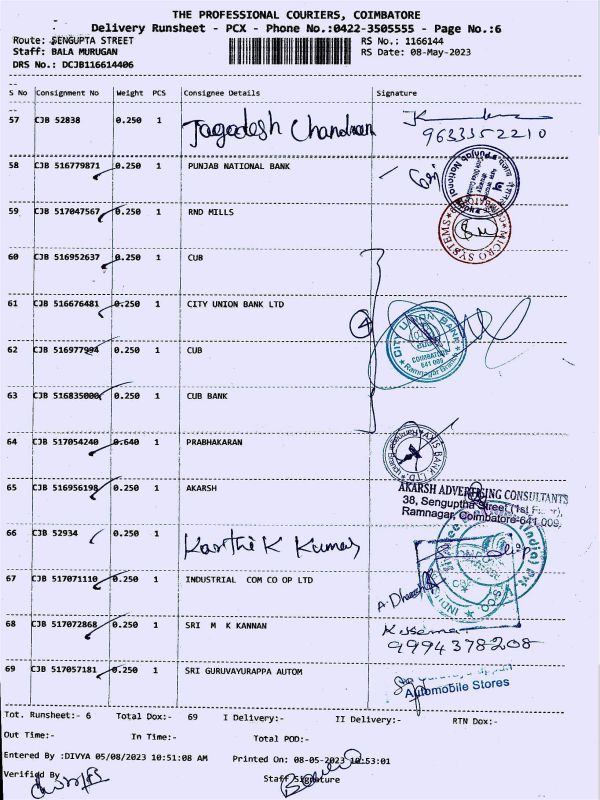 THE PROFESSIONAL COURIERS, COIMBATORE
Delivery Runsheet - PCX - Phone No.:0422-3505555 - Page No.:6
Route: SENGUPTA STREET RS No.: 1166144
Staff: BALA MURUGAN RS Date: 08-May-2023
DRS No.: DCJB116614406
S No Consignment No Weight PCS Consignee Details Signature
57 CJB 52838 0.250 1 Jagadesh Chandran
9633352210
58 CJB 516779871 0.250 1 PUNJAB NATIONAL BANK
59 CJB 517047567 0.250 1 RND MILLS
MICRO SYSTEMS
60 CJB 516952637 0.250 1 CUB
61 CJB 516676481 0.250 1 CITY UNION BANK LTD
4
CITY UNION BANK
COIMBATORE
641 009
Ramnagar Branch
62 CJB 516977994 0.250 1 CUB
63 CJB 516835000 0.250 1 CUB BANK
64 CJB 517054240 0.640 1 PRABHAKARAN
AXIS BANK LTD
65 CJB 516956198 0.250 1 AKARSH
AKARSH ADVERTISING CONSULTANTS
38, Senguptha Street (1st Floor),
Ramnagar, Coimbatore-641 009.
66 CJB 52934 0.250 1 Karthi K Kumar
67 CJB 517071110 0.250 1 INDUSTRIAL COM CO OP LTD
68 CJB 517072868 0.250 1 SRI M K KANNAN
9994378208
69 CJB 517057181 0.250 1 SRI GURUVAYURAPPA AUTOM
Automobile Stores
Tot. Runsheet:- 6 Total Dox:- 69 I Delivery:- II Delivery:- RTN Dox:-
Out Time:- In Time:- Total POD:-
Entered By :DIVYA 05/08/2023 10:51:08 AM Printed On: 08-05-2023 10:53:01
Verified By Staff Signature